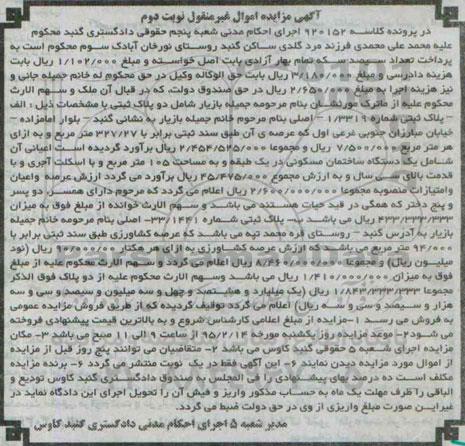 آگهی مزایده اموال غیرمنقول نوبت دوم
در پرونده کلاسه ۹۲۰۱۵۲ اجرای احکام مدنی شعبه پنجم حقوقی دادگستری گنبد محکوم
علیه محمد علی محمدی فرزند مرد گلدی ساکن گنبد روستای نورخان آبادک سوم محکوم است به
پرداخت تعداد سیصد سکه تمام بهار آزادی بابت اصل خواسته و مبلغ ۱/۱۰۲/۰۰۰ ریال بابت
هزینه دادرسی و مبلغ ۳/۱۸۰/۰۰۰ ریال بابت حق الوکاله وکیل در حق محکوم له خانم جمیله جانی و
نیز هزینه اجرا به مبلغ ۲/۶۵۰/۰۰۰ ریال در حق صندوق دولت، که در قبال آن ملک و سهم الارث
محکوم علیه از ماترک مورثشان بنام مرحومه جمیله بازیار شامل دو پلاک ثبتی با مشخصات ذیل: الف
- پلاک ثبتی شماره ۱/۳۳۱۹ - اصلی بنام مرحوم خانم جمیله بازیار به نشانی گنبد - بلوار امامزاده -
خیابان مبارزان جنوبی فرعی اول که عرصه ی آن طبق سند ثبتی برابر با ۳۲۷/۲۷ متر مربع و به ازای
هر متر مربع ۷/۵۰۰/۰۰۰ ریال و مجموعا ۲/۴۵۴/۵۲۵/۰۰۰ ریال برآورد گردیده است اعیانی آن
شامل یک دستگاه ساختمان مسکونی در یک طبقه و به مساحت ۱۰۵ متر مربع و با اسکلت آجری و با
قدمت بالای سی سال و به ارزش مجموع ۴۵/۴۷۵/۰۰۰ ریال برآورد می گردد ارزش عرصه واعیان
وامتیازات منصوبه مجموعا ۲/۶۰۰/۰۰۰/۰۰۰ ریال اعلام می گردد که مرحوم دارای همسر، دو پسر
و پنج دختر که همگی در قید حیات هستند می باشد و سهم الارث خوانده از مبلغ فوق به میزان
۴۳۳/۳۳۳/۳۳۳ ریال می باشد. ب- پلاک ثبتی شماره ۳۳/۱۴۴۱- اصلی بنام مرحومه خانم جمیله
بازیار به آدرس گنبد - روستای قره محمد تپه می باشد که عرصه کشاورزی طبق سند ثبتی برابر با
۹۴/۰۰۰ متر مربع می باشد که ارزش عرصه کشاورزی به ازای هر هکتار ۹۰/۰۰۰/۰۰۰ ریال (نود
میلیون ریال) و مجموعا ۸/۴۶۰/۰۰۰/۰۰۰ ریال اعلام می گردد و سهم الارث محکوم علیه از مبلغ
فوق به میزان ۱/۴۱۰/۰۰۰/۰۰۰ ریال می باشد وسهم الارث محکوم علیه از دو پلاک فوق الذکر
مجموعا ۱/۸۴۳/۳۳۳/۳۳۳ ریال (یک میلیارد و هشتصد و چهل و سه میلیون و سیصد و سی و سه
هزار و سیصد و سی و سه ریال) اعلام می گردد توقیف گردیده که از طریق فروش مزایده عمومی
به فروش می رسد ۱- مزایده از مبلغ اعلامی کارشناس شروع و به بالاترین قیمت پیشنهادی فروخته
می شود ۲- موعد مزایده روز یکشنبه مورخه ۹۵/۲/۱۴ از ساعت ۹ الی ۱۱ صبح می باشد ۳- مکان
مزایده اجرای شعبه ۵ حقوقی گنبد کاوس می باشد ۲- متقاضیان می توانند پنج روز قبل از مزایده
از اموال مورد مزایده دیدن نمایند ۶- این آگهی فقط در یک نوبت منتشر می گردد ۶- برنده مزایده
مکلف است ده درصد بهای پیشنهادی را فی المجلس به صندوق دادگستری گنبد کاوس تودیع و
الباقی را ظرف مهلت یک ماه به حساب مذکور واریز و فیش آن را تحویل اجرای این دادگاه نماید در
غیر این صورت مبلغ واریزی از وی در حق دولت ضبط می گردد.
مدیر شعبه ۵ اجرای احکام مدنی دادگستری گنبد کاوس